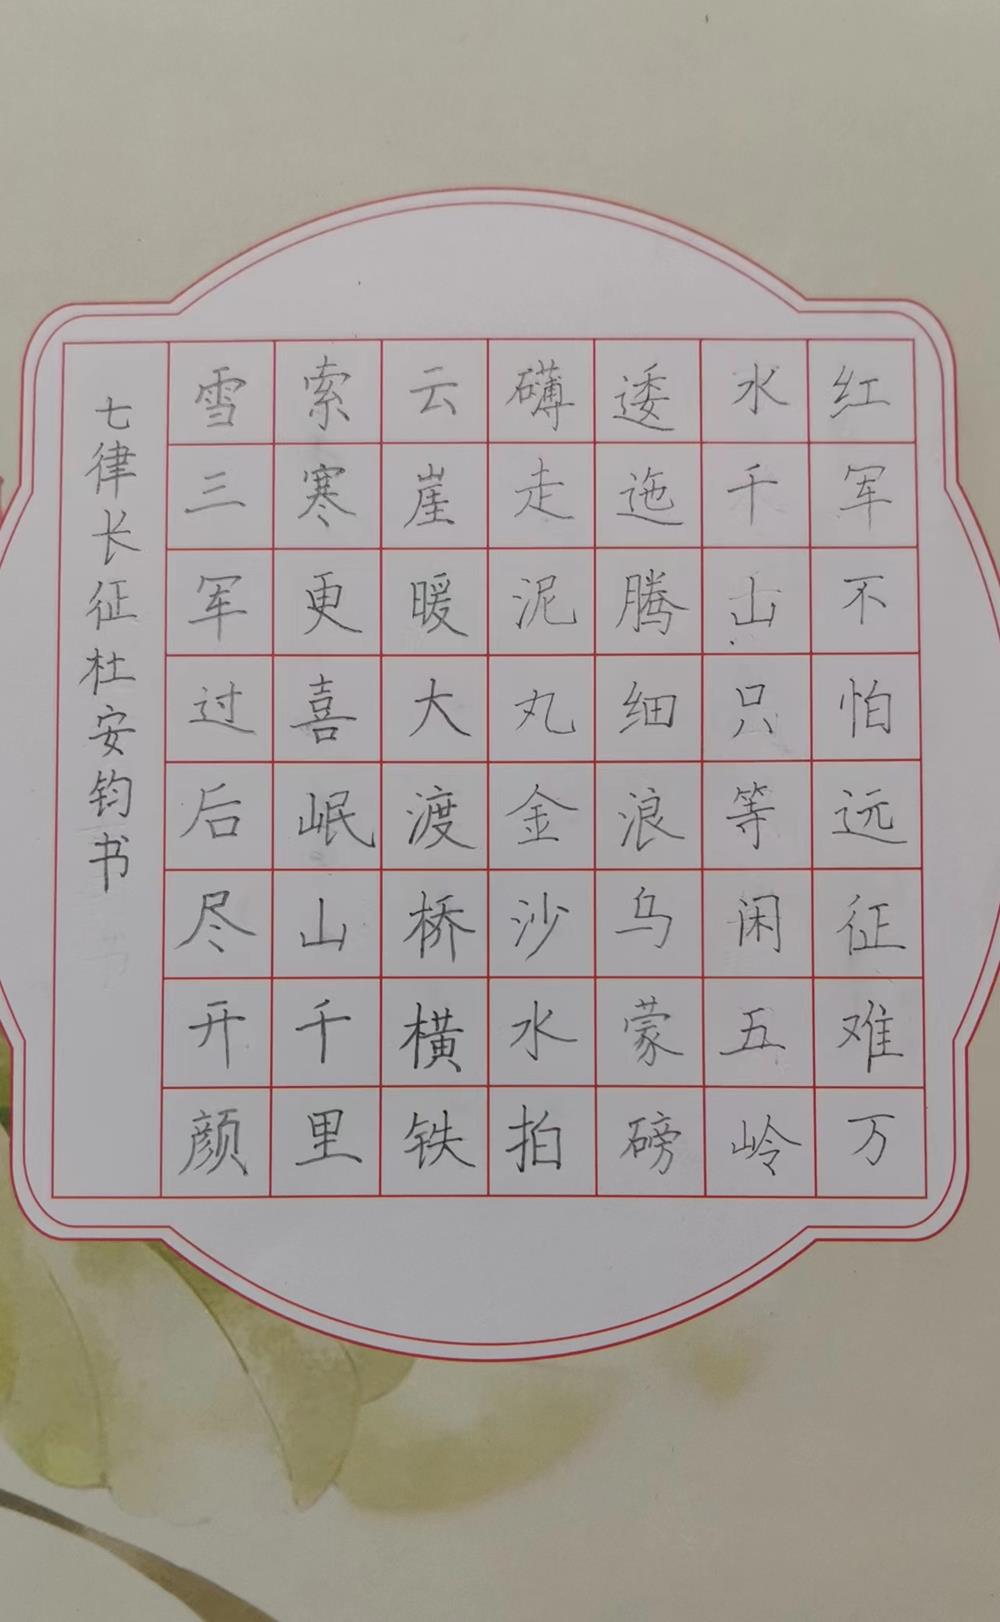 红军不怕远征难万
水千山只等闲五岭
逶迤腾细浪乌蒙磅
礴走泥丸金沙水拍
云崖暖大渡桥横铁
索寒更喜岷山千里
雪三军过后尽开颜
七律长征杜安钧书